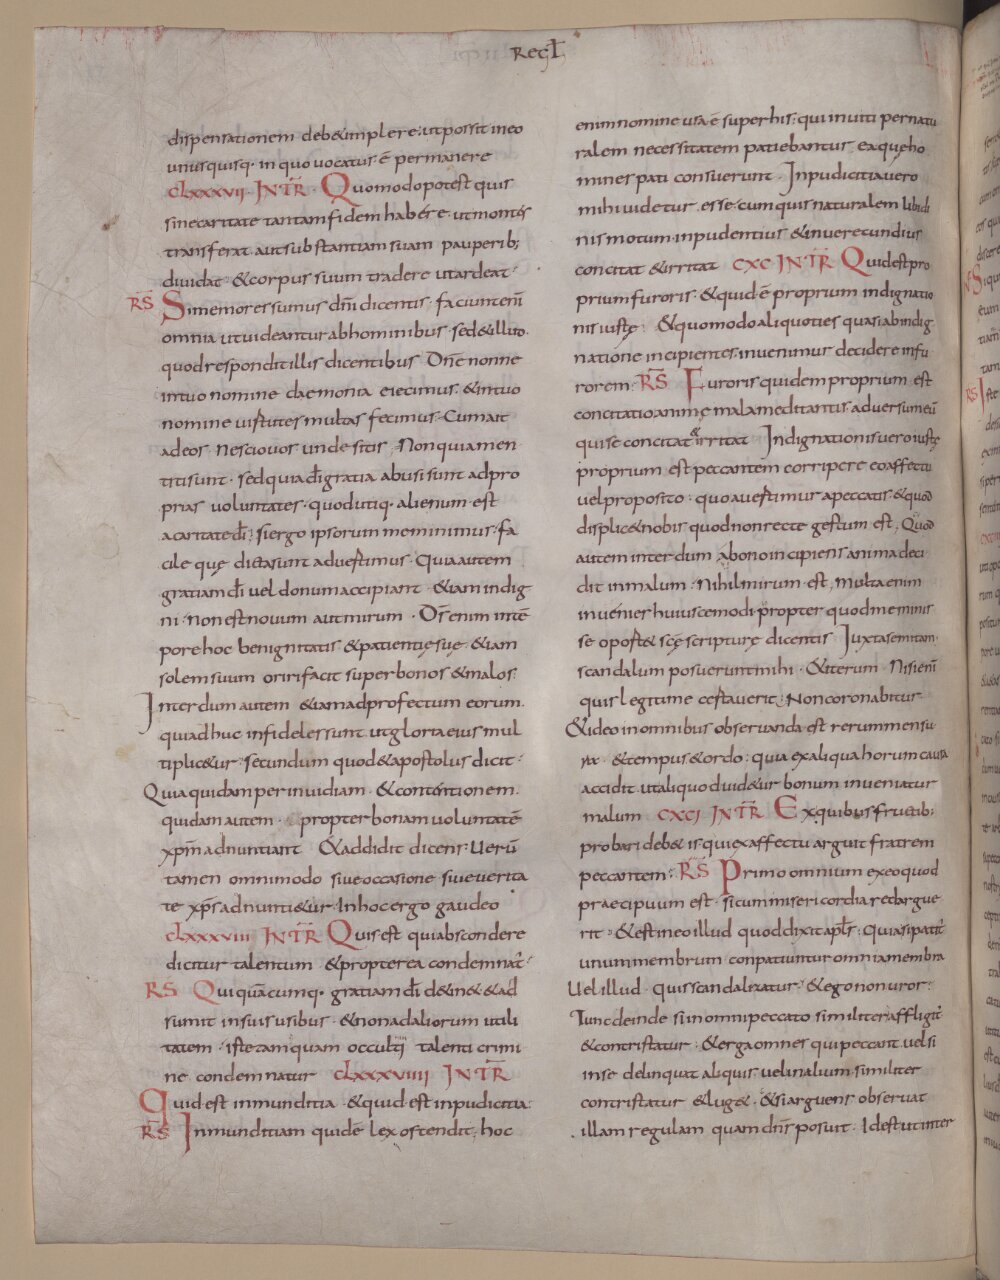 Regl
dispensationem deb&implere; ut possit in eo
unusquisq· in quo uocatus· ē permanere
clxxxvii· INTR̄· Quomodo potest quis
sine caritate tantam fidem habére· ut montes
transferat aut substantiam suam pauperib;
diuidat· &corpus suum tradere ut ardeat·
RS̄ Si memores sumus dn̄i dicentis· faciunt eni
omnia ut uideantur ab hominibus· sed &illud·
quod respondit illis dicentibus· Dn̄e nonne
in tuo nomine daemonia eiecimus· &in tuo
nomine uirtutes multas fecimus· Cum ait
ad eos· Nescio uos unde sitis, Non quia men
titi sunt· sed quia dī gratia abusi sunt ad pro
prias uoluntates· quod utiq· alienum· est
a caritate dī; si ergo ipsorum meminimus· fa
cile quę dicta sunt aduertimus· Quia autem
gratiam dī uel donum accipiant· &iam indig
ni· non est nouum aut mirum· Ds̄ enim in tē
pore hoc benignitatis· &patientię suę· &iam
solem suum oriri facit super bonos &malos·
Interdum autem &iam ad profectum eorum·
qui adhuc infideles sunt· ut gloria eius mul
tiplic&ur· secundum quod &apostolus dicit·
Quia quidam per inuidiam· &contentionem·
quidam autem· propter bonam uoluntatē
xpm̄ adnuntiant &addidit dicens· Uerū
tamen omnimodo siue occasione siue uerita
te xps̄ adnunti&ur· In hoc ergo gaudeo
clxxxviii INTR̄ Quis est qui abscondere
dicitur talentum &propterea condemnat·
RS̄ Qui quācumq· gratiam dī d&in& &ad
sumit in suis usibus· &non ad aliorum utili
tatem· iste tamquam occulti talenti crimi
ne condemnatur clxxxviiii INTR̄
Quid est inmunditia &quid est inpudicitia
RS̄ Inmunditiam quidē lex ostendit; hoc
enim nomine usa ē super his; qui inuiti per natu
ralem necessitatem patiebantur, ea quę ho
mines pati consuerunt· Inpudicitia uero
mihi uidetur esse· cum quis naturalem libidi
nis motum inpudentius &inuerecundius
concitat &irritat cxc INTR̄ Quid est pro
prium furoris· &quid ē proprium indignatio
nis iustę &quomodo aliquoties quasi ab indig
natione incipientes inuenimur decidere in fu
rorem· RS̄ Furoris quidem proprium est
concitatio animę mala meditantis aduersum eū
qui se concitat &irritat Indignationis uero iustę
proprium est peccantem corripere eo affectu
uel proposito; quo auertimur a peccatis &quod
displic& nobis quod non recte gestum est, Quod
autem interdum a bono incipiens anima deci
dit in malum· Nihil mirum est, multa enim
inuénies huiuscemodi· propter quod memnis
se oport& scę scripturę dicentis Iuxta semitam·
scandalum posuerunt mihi· &iterum· Nisi eni
quis legitime certauerit; Non coronabitur
&ideo in omnibus obseruanda est rerum mensu
ra· &tempus &ordo; quia ex aliqua horum causa
accidit ut aliquod uid&ur bonum inueniatur
malum cxci INTR̄ Ex quibus fructib;
probari deb& is qui ex affectu arguit fratrem
peccantem· RS̄ Primo omnium ex eo quod
praecipuum est· si cum misericordia redargue
rit· &est in eo illud quod dixit apls̄· quia si patit
unum membrum conpatiuntur omnia membra
Uel illud· quis scandalizatur· &ego non uror·
Tunc deinde si in omni peccato similiter affligit
&contristatur· &erga omnes qui peccant uel si
in se delinquat aliquis uel in alium similiter
contristatur &lug&· &si arguens obseruat
illam regulam quam dn̄s posuit· Id est ut inter